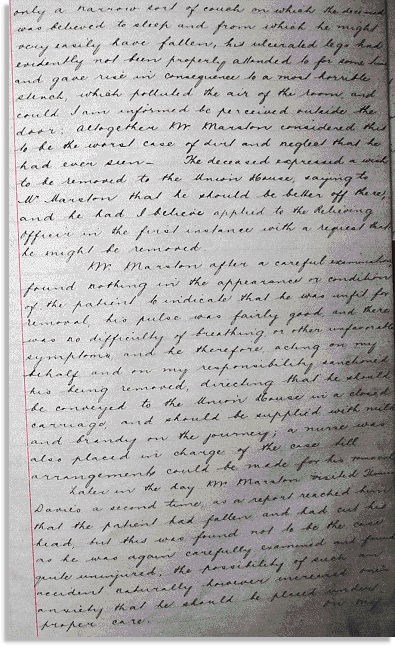 only a narrow sort of couch on which the deceased
was believed to sleep and from which he might
very easily have fallen, his ulcerated legs had
evidently not been properly attended to for some time
and gave rise in consequence to a most horrible
stench, which polluted the air of the room, and
could I am informed be perceived outside the
door; Altogether Mr. Marston considered this
to be the worst case of dirt and neglect that he
had ever seen — The deceased expressed a wish
to be removed to the Union House, saying to
Mr Marston that he should be better off there,
and he had I believe applied to the Relieving
Officer in the first instance with a request that
he might be removed
Mr. Marston after a careful examination
found nothing in the appearance or condition
of the patient to indicate that he was unfit for
removal, his pulse was fairly good and there
was no difficulty of breathing or other unfavorable
symptoms, and he therefore, acting on my
behalf and on my responsibility sanctioned
his being removed, directing that he should
be conveyed to the Union House in a closed
carriage, and should be supplied with milk
and brandy on the journey; a nurse was
also placed in charge of the case till
arrangements could be made for his removal
Later in the day Mr Marston visited
Davies a second time, as a report reached him
that the patient had fallen and had cut his
head, but this was found not to be the case
as he was again carefully examined and found
quite uninjured, the possibility of such an
accident naturally however increased one's
anxiety that he should be placed under
proper care. on my